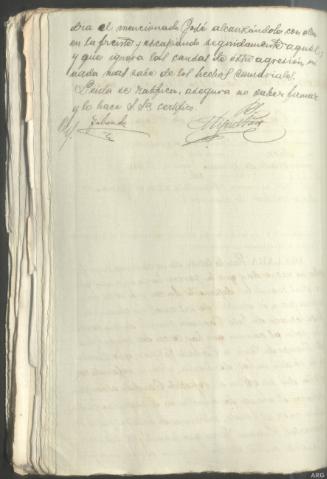 dra el mencionado José alcanzándolo con ella
en la frente y escapando seguidamente aquel,
y que ignora las causas de esta agresión
nada mas sabe de los hechos
Leida se ratifica, asegura no saber firmar
y lo hace S Sª certifico.
ARG